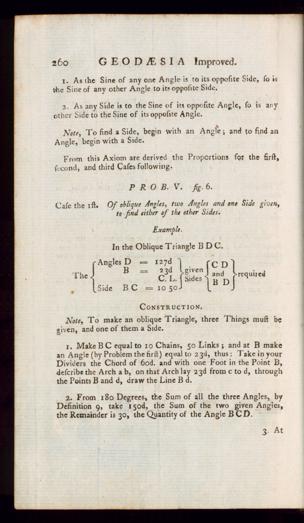 260 GEODÆSIA Improved.
1. As the Sine of any one Angle is to its opposite Side, so is
the Sine of any other Angle to its opposite Side.
2. As any Side is to the Sine of its opposite Angle, so is any
other Side to the Sine of its opposite Angle.
Note, To find a Side, begin with an Angle; and to find an
Angle, begin with a Side.
From this Axiom are derived the Proportions for the first,
second, and third Cases following.
PROB. V. fig. 6.
Case the 1st. Of oblique Angles, two Angles and one Side given,
to find either of the other Sides.
Example.
In the Oblique Triangle B D C.
The { Angles D = 127d } given { C D } required
B = 23d and
C. L. Sides B D
Side B C = 10 50
CONSTRUCTION.
Note, To make an oblique Triangle, three Things must be
given, and one of them a Side.
1. Make B C equal to 10 Chains, 50 Links; and at B make
an Angle (by Problem the first) equal to 23d, thus: Take in your
Dividers the Chord of 60d. and with one Foot in the Point B,
describe the Arch a b, on that Arch lay 23d from c to d, through
the Points B and d, draw the Line B d.
2. From 180 Degrees, the Sum of all the three Angles, by
Definition 9, take 150d, the Sum of the two given Angles,
the Remainder is 30, the Quantity of the Angle B C D.
3. At